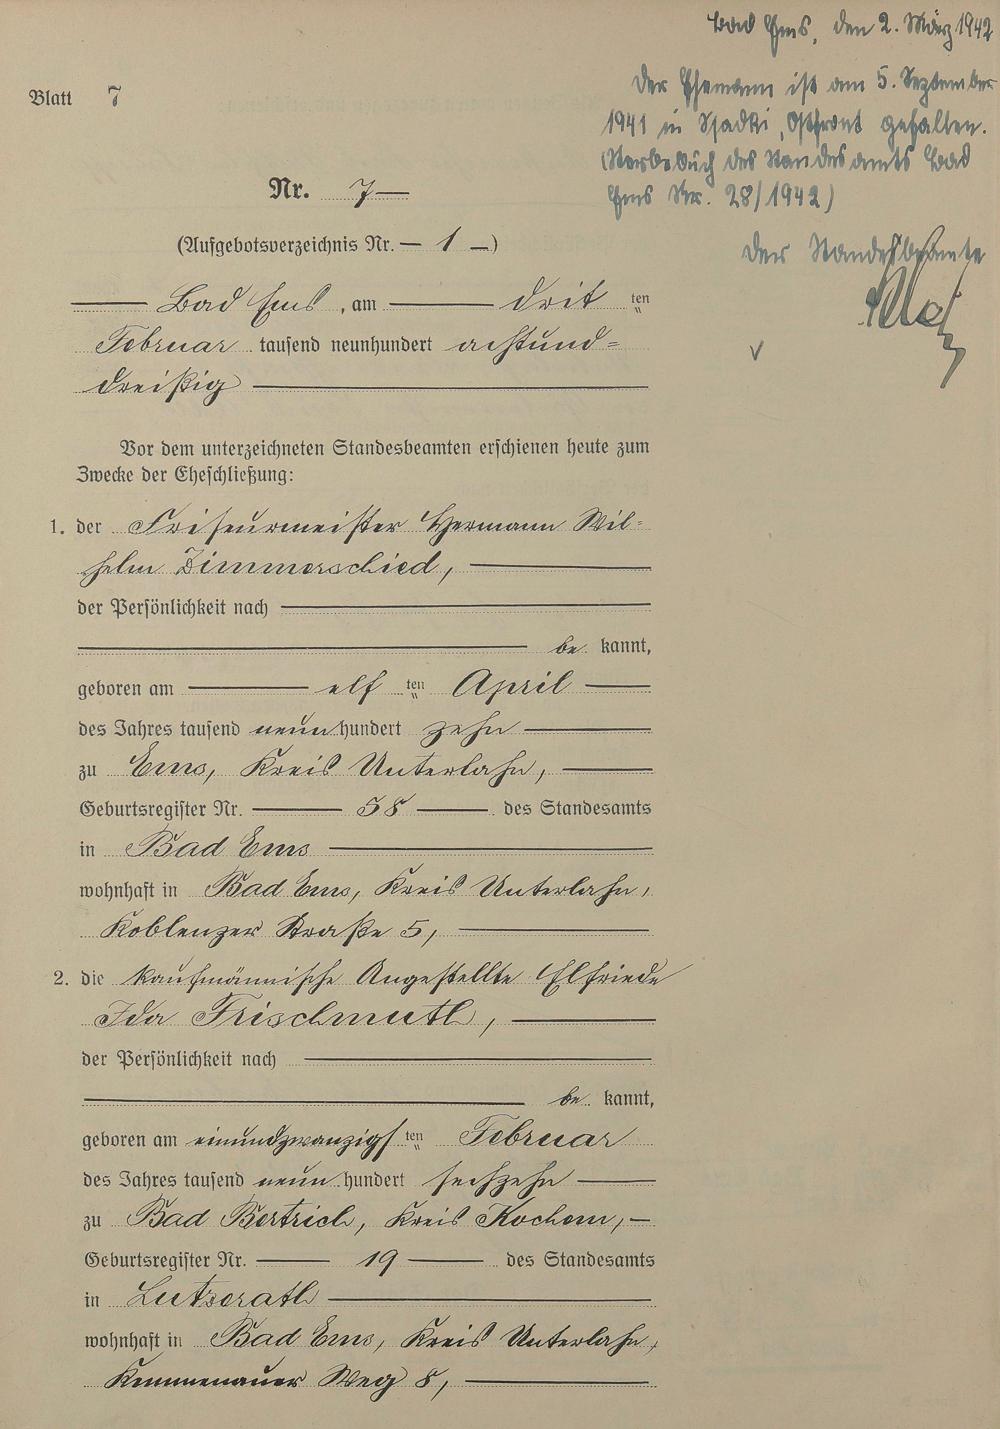 Bad Ems, den 2. März 1942
Der Ehemann ist am 5. September
1941 in Sjadki, Ostfront gefallen.
(Sterbebuch des Standesamts Bad
Ems Nr. 28/1942)
Der Standesbeamte
Blatt 7
Nr. 7
(Aufgebotsverzeichnis Nr. — 1 —)
Bad Ems, am dritten
Februar tausend neunhundert achtund=
dreißig
Vor dem unterzeichneten Standesbeamten erschienen heute zum
Zwecke der Eheschließung:
1. der Friseurmeister Hermann Wil=
helm Zimmerschied,
der Persönlichkeit nach
be kannt,
geboren am elf ten April
des Jahres tausend neun hundert zehn
zu Ems, Kreis Unterlahn,
Geburtsregister Nr. 58 des Standesamts
in Bad Ems
wohnhaft in Bad Ems, Kreis Unterlahn,
Koblenzer Straße 5,
2. die kaufmännische Angestellte Elfriede
Ida Frischmuth,
der Persönlichkeit nach
be kannt,
geboren am einundzwanzigs ten Februar
des Jahres tausend neun hundert sechzehn
zu Bad Bertrich, Kreis Kochem, —
Geburtsregister Nr. 19 des Standesamts
in Lutzerath
wohnhaft in Bad Ems, Kreis Unterlahn,
Kemmenauer Weg 8,